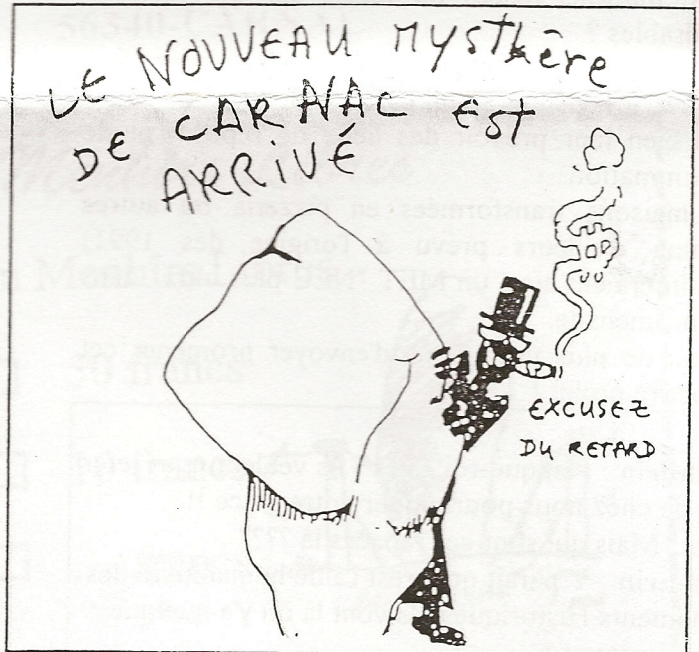 LE NOUVEAU MYSTHÈRE
DE CARNAC EST
ARRIVÉ
EXCUSEZ
DU RETARD